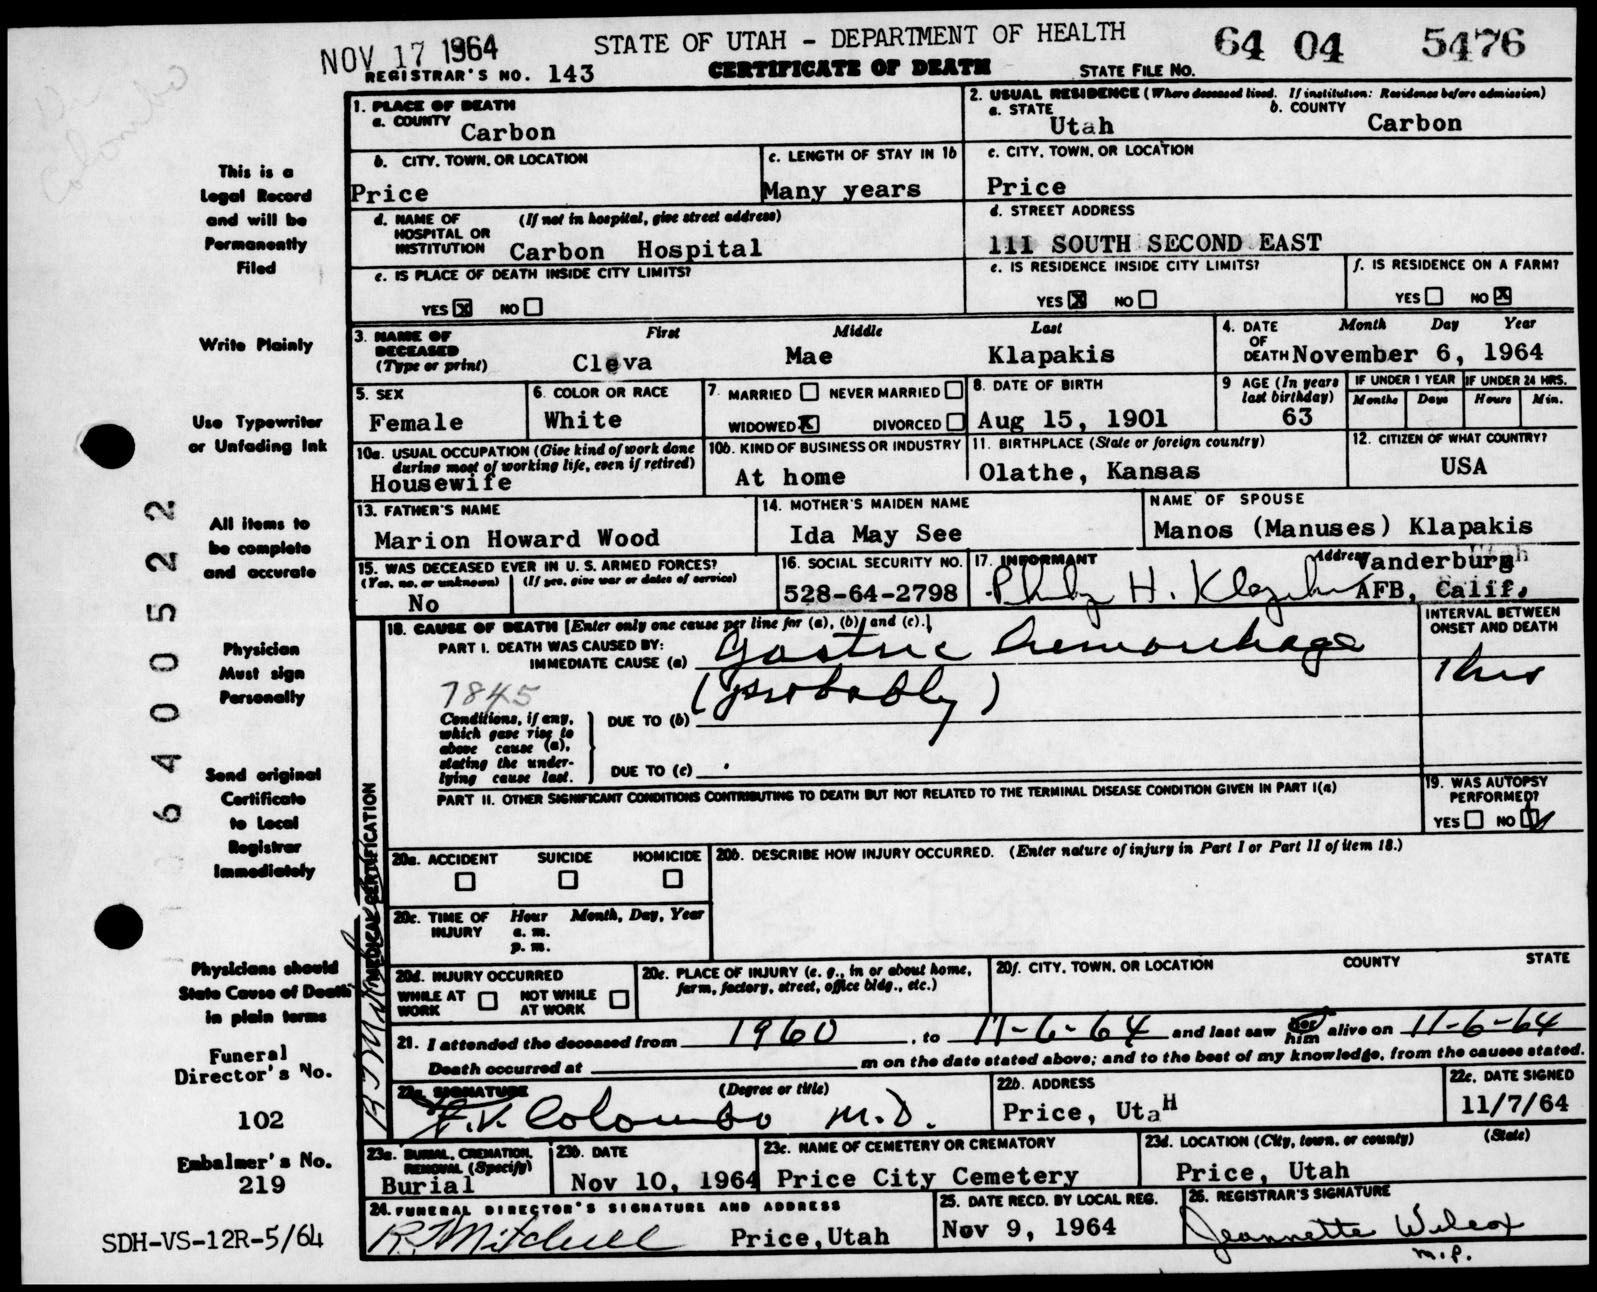 NOV 17 1964
STATE OF UTAH - DEPARTMENT OF HEALTH
64 04 5476
REGISTRAR'S NO. 143
CERTIFICATE OF DEATH
STATE FILE NO.
Dr
Colombo
This is a
Legal Record
and will be
Permanently
Filed
Write Plainly
Use Typewriter
or Unfading Ink
All items to
be complete
and accurate
Physician
Must sign
Personally
Send original
Certificate
to Local
Registrar
Immediately
Physicians should
State Cause of Death
in plain terms
Funeral
Director's No.
102
Embalmer's No.
219
SDH-VS-12R-5/64
6400522
1. PLACE OF DEATH
a. COUNTY
Carbon
2. USUAL RESIDENCE (Where deceased lived. If institution: Residence before admission)
a. STATE
Utah
b. COUNTY
Carbon
b. CITY, TOWN, OR LOCATION
Price
c. LENGTH OF STAY IN 1b
Many years
c. CITY, TOWN, OR LOCATION
Price
d. NAME OF HOSPITAL OR INSTITUTION (If not in hospital, give street address)
Carbon Hospital
d. STREET ADDRESS
111 SOUTH SECOND EAST
e. IS PLACE OF DEATH INSIDE CITY LIMITS?
YES X NO
e. IS RESIDENCE INSIDE CITY LIMITS?
YES X NO
f. IS RESIDENCE ON A FARM?
YES NO X
3. NAME OF DECEASED (Type or print)
First Middle Last
Cleva Mae Klapakis
4. DATE OF DEATH Month Day Year
November 6, 1964
5. SEX
Female
6. COLOR OR RACE
White
7. MARRIED NEVER MARRIED
WIDOWED X DIVORCED
8. DATE OF BIRTH
Aug 15, 1901
9 AGE (In years last birthday)
63
IF UNDER 1 YEAR
Months Days
IF UNDER 24 HRS.
Hours Min.
10a. USUAL OCCUPATION (Give kind of work done during most of working life, even if retired)
Housewife
10b. KIND OF BUSINESS OR INDUSTRY
At home
11. BIRTHPLACE (State or foreign country)
Olathe, Kansas
12. CITIZEN OF WHAT COUNTRY?
USA
13. FATHER'S NAME
Marion Howard Wood
14. MOTHER'S MAIDEN NAME
Ida May See
NAME OF SPOUSE
Manos (Manuses) Klapakis
15. WAS DECEASED EVER IN U. S. ARMED FORCES?
(Yes, no, or unknown) (If yes, give war or dates of service)
No
16. SOCIAL SECURITY NO.
528-64-2798
17. INFORMANT
H. Address
Vanderburg
AFB, Calif.
18. CAUSE OF DEATH [Enter only one cause per line for (a), (b), and (c).]
PART I. DEATH WAS CAUSED BY:
IMMEDIATE CAUSE (a)
Gastric hemorrhage
(probably)
7845
INTERVAL BETWEEN ONSET AND DEATH
Conditions, if any, which gave rise to above cause (a), stating the underlying cause last.
DUE TO (b)
DUE TO (c)
PART II. OTHER SIGNIFICANT CONDITIONS CONTRIBUTING TO DEATH BUT NOT RELATED TO THE TERMINAL DISEASE CONDITION GIVEN IN PART I(a)
19. WAS AUTOPSY PERFORMED?
YES NO
MEDICAL CERTIFICATION
20a. ACCIDENT SUICIDE HOMICIDE
20b. DESCRIBE HOW INJURY OCCURRED. (Enter nature of injury in Part I or Part II of item 18.)
20c. TIME OF INJURY
Hour Month, Day, Year
a. m.
p. m.
20d. INJURY OCCURRED
WHILE AT WORK NOT WHILE AT WORK
20e. PLACE OF INJURY (e. g., in or about home, farm, factory, street, office bldg., etc.)
20f. CITY, TOWN, OR LOCATION COUNTY STATE
21. I attended the deceased from 1960, to 11-6-64 and last saw her him alive on 11-6-64
Death occurred at m on the date stated above; and to the best of my knowledge, from the causes stated.
22a. SIGNATURE (Degree or title)
F.V. Colombo M.D.
22b. ADDRESS
Price, UtaH
22c. DATE SIGNED
11/7/64
23a. BURIAL, CREMATION, REMOVAL (Specify)
Burial
23b. DATE
Nov 10, 1964
23c. NAME OF CEMETERY OR CREMATORY
Price City Cemetery
23d. LOCATION (City, town, or county) (State)
Price, Utah
24. FUNERAL DIRECTOR'S SIGNATURE AND ADDRESS
R.J. Mitchell Price, Utah
25. DATE RECD. BY LOCAL REG.
Nov 9, 1964
26. REGISTRAR'S SIGNATURE
Jeannette Wilcox
m.p.